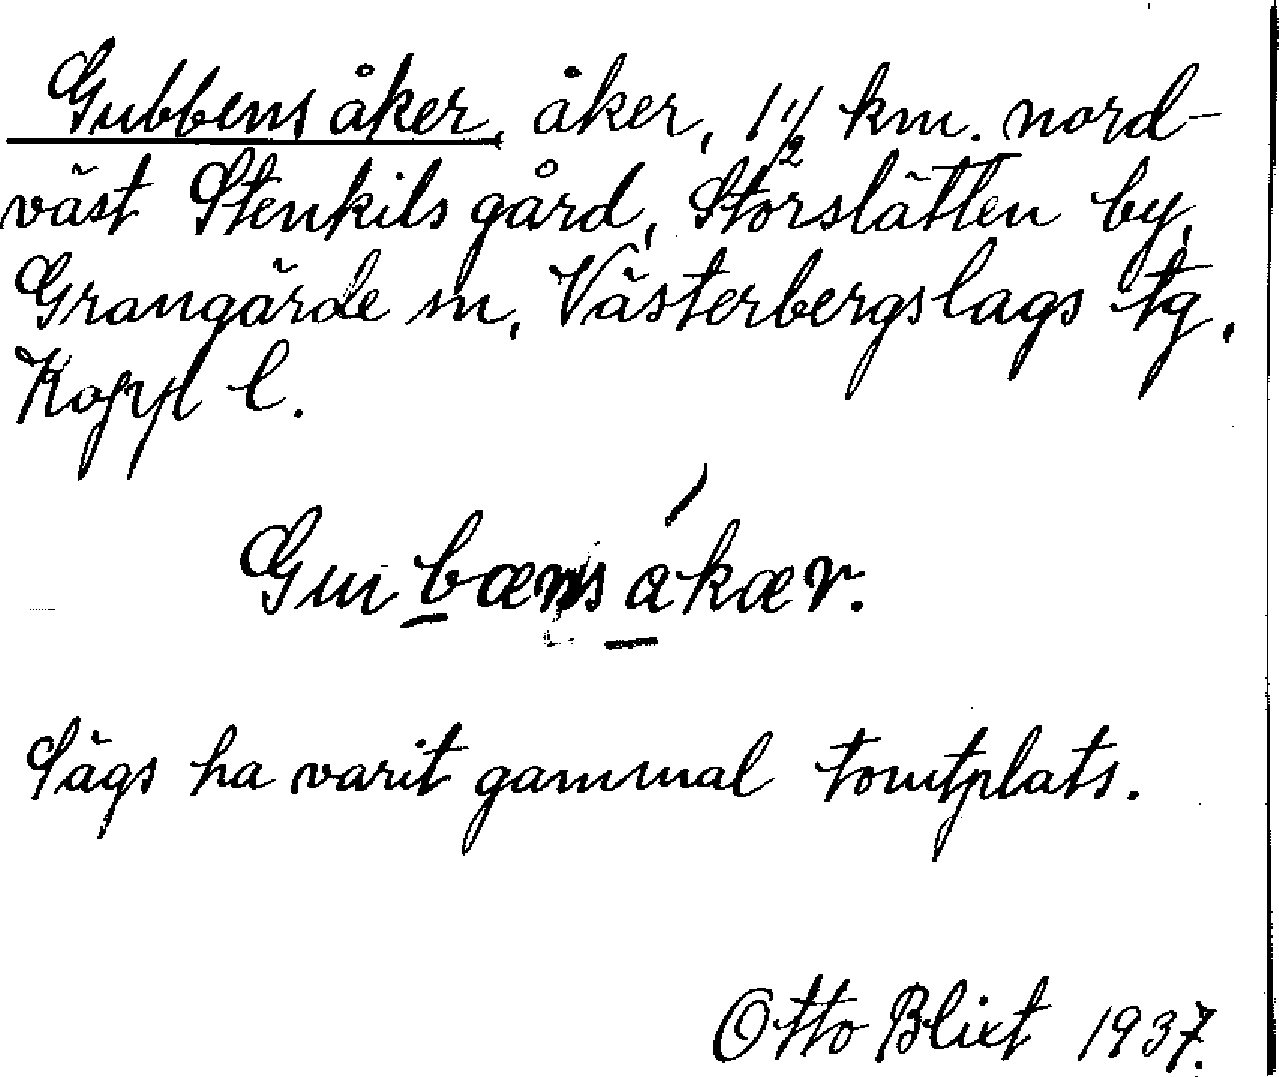 Gubbens åker, åker, 1 1/2 km. nord-
väst Stenkils gård, Storslätten by,
Grangärde sn, Västerbergslags tg,
Kopp l.
Gubænsakær.
Sägs ha varit gammal tomtplats.
Otto Blixt 1937.